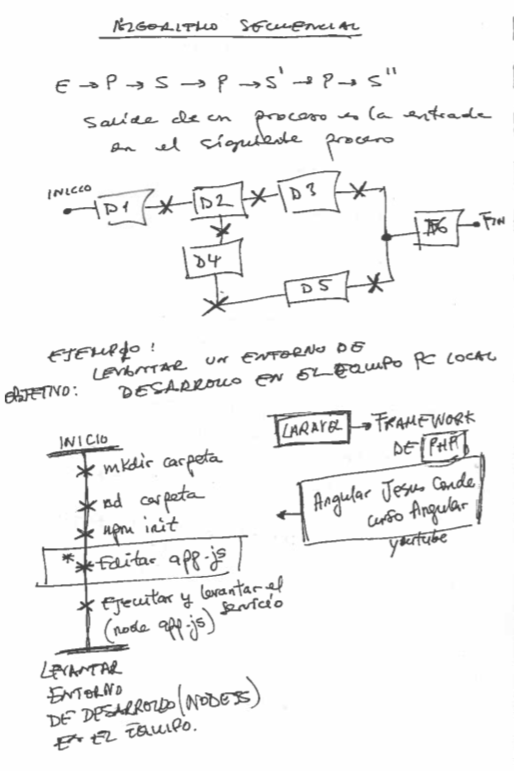 ALGORITMO SECUENCIAL
E → P → S → P → S' → P → S''
Salida de un proceso es la entrada
en el siguiente proceso
INICIO
D1
D2
D3
D4
D5
D6
FIN
EJEMPLO:
LEVANTAR UN ENTORNO DE
OBJETIVO: DESARROLLO EN EL EQUIPO PC LOCAL
INICIO
mkdir carpeta
cd carpeta
npm init
* Editar app.js
Ejecutar y levantar el
servicio
(node app.js)
LEVANTAR
ENTORNO
DE DESARROLLO (NODEJS)
EN EL EQUIPO.
LARAVEL → FRAMEWORK
DE PHP
Angular Jesus Conde
curso Angular
youtube